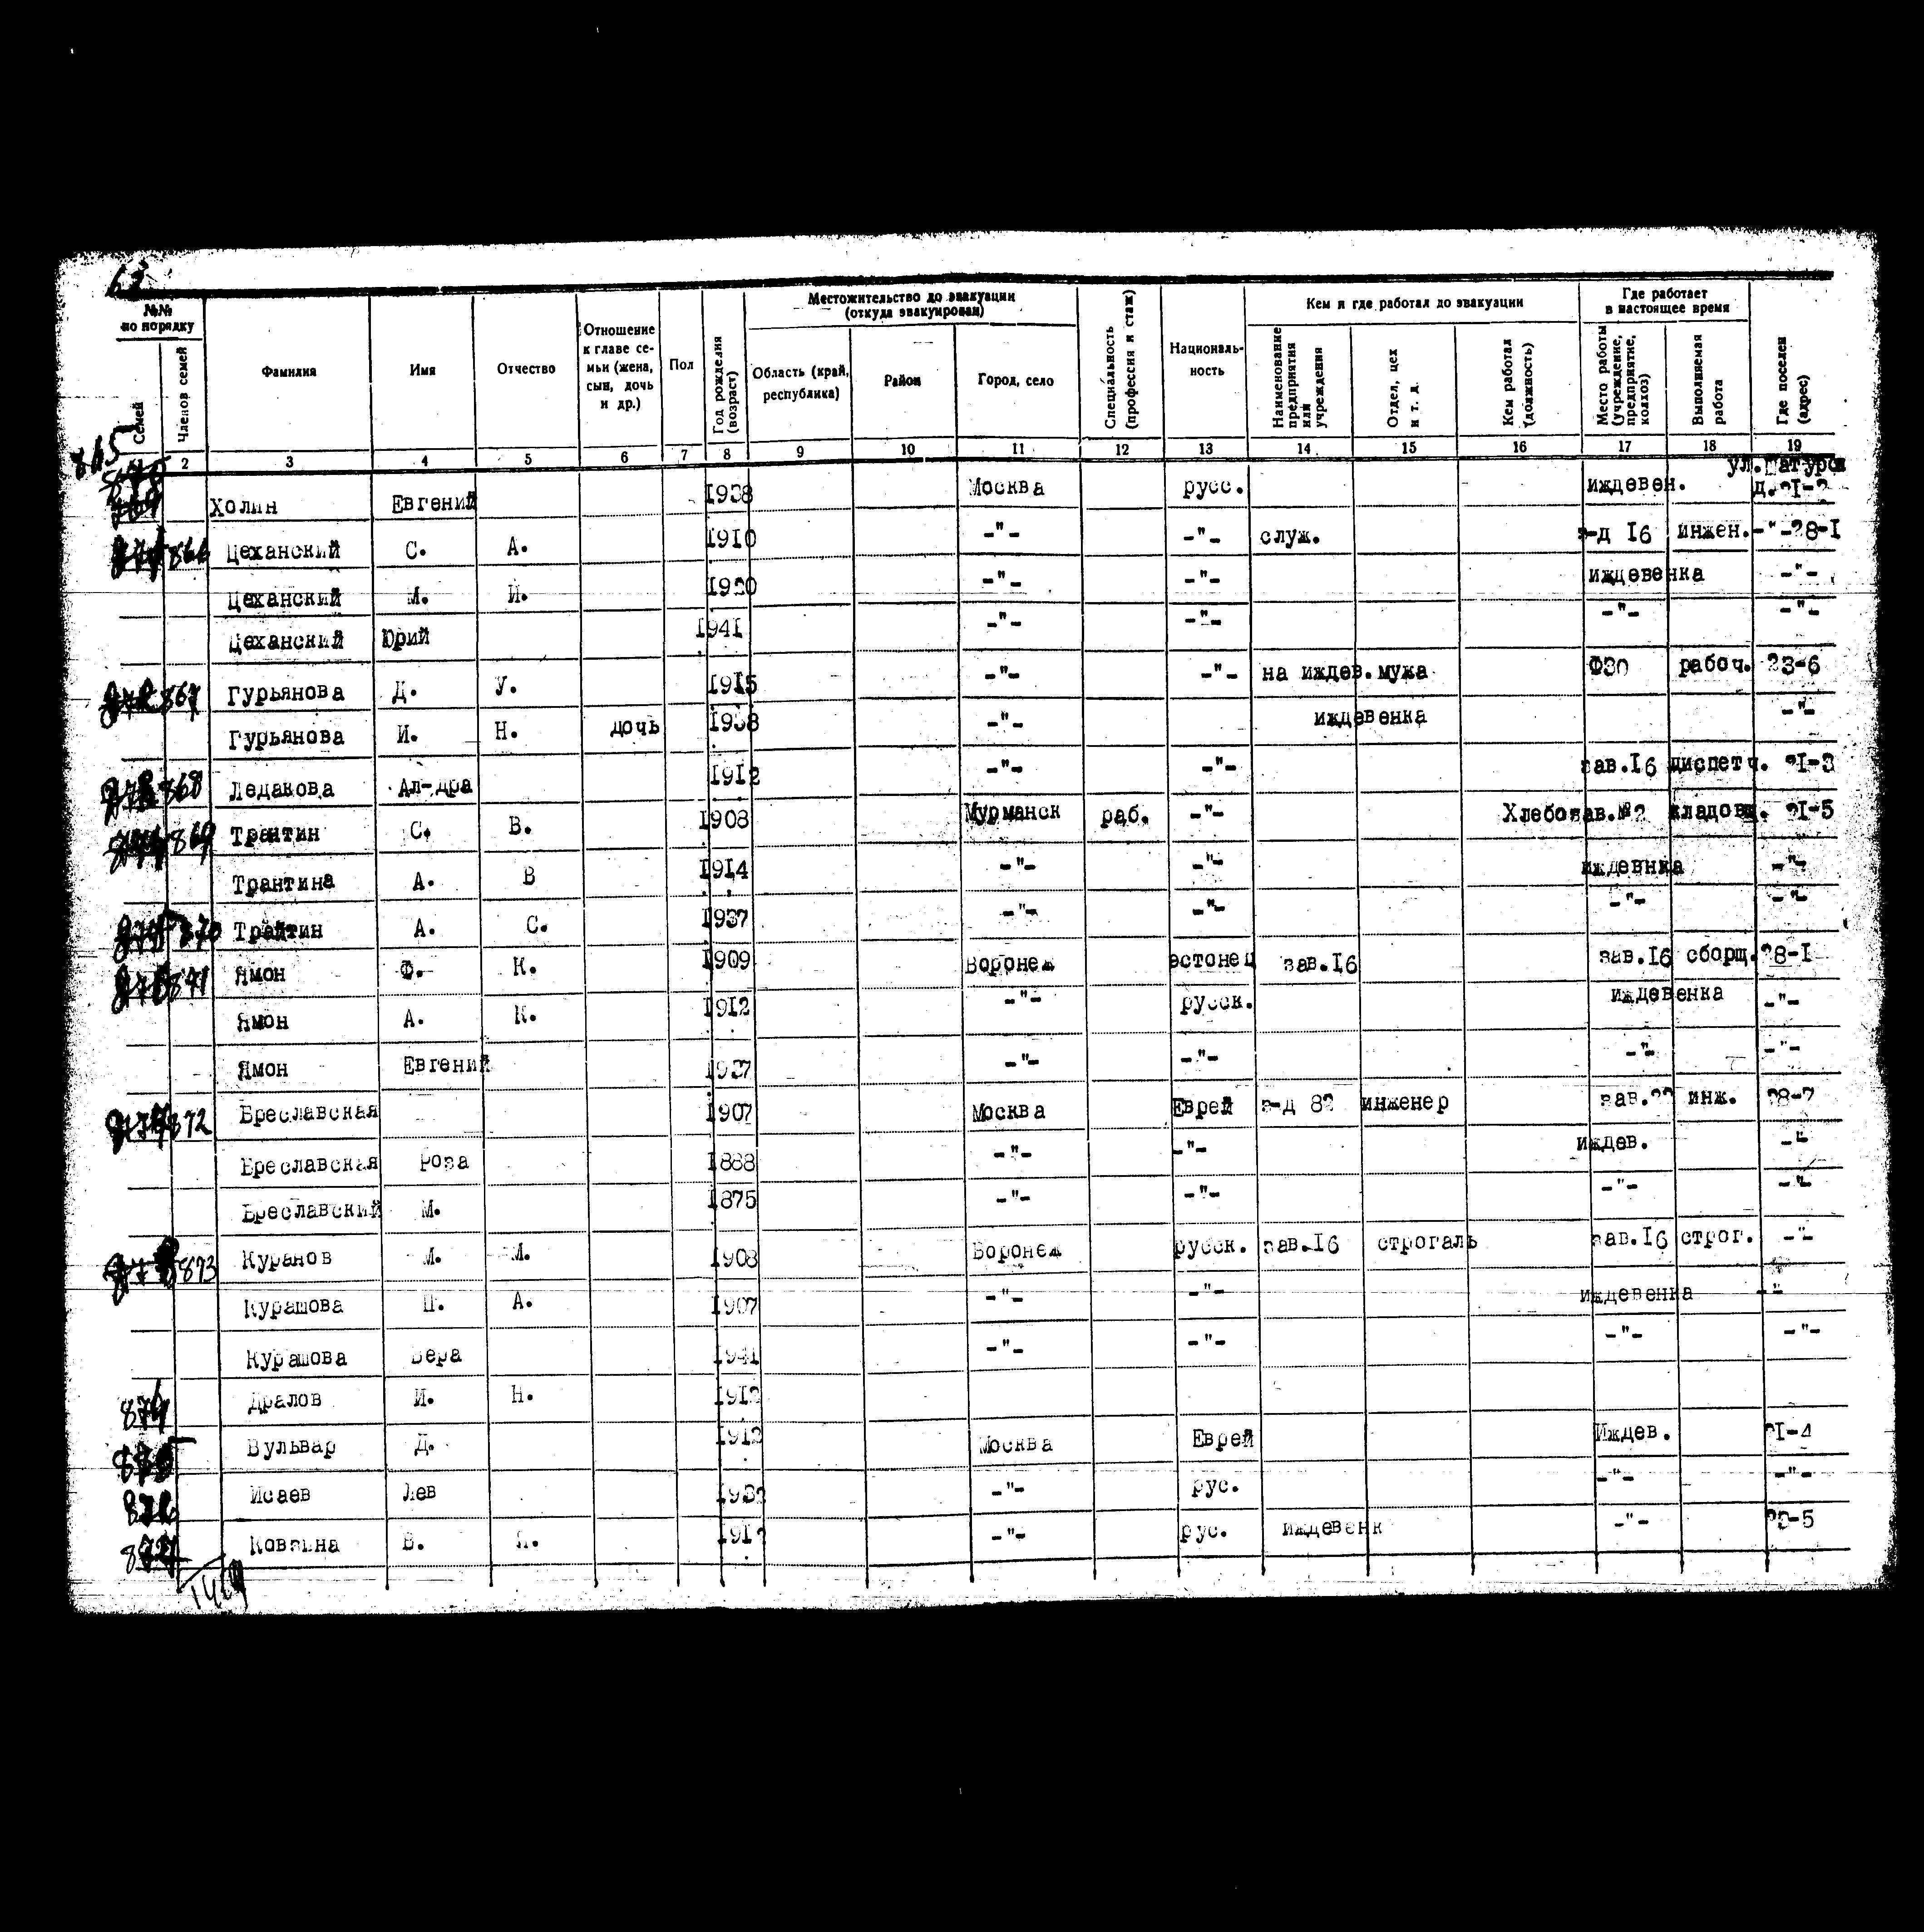 63
№№ по порядку
Семей
Членов семей
Фамилия
Имя
Отчество
Отношение к главе семьи (жена, сын, дочь и др.)
Пол
Год рождения (возраст)
Местожительство до эвакуации (откуда эвакуирован)
Область (край, республика)
Район
Город, село
Специальность (профессия и стаж)
Национальность
Кем и где работал до эвакуации
Наименование предприятия или учреждения
Отдел, цех и т. д.
Кем работал (должность)
Где работает в настоящее время
Место работы (учреждение, предприятие, колхоз)
Выполняемая работа
Где поселен (адрес)
2 3 4 5 6 7 8 9 10 11 12 13 14 15 16 17 18 19
865 Холин Евгений 1938 Москва русс. иждевен. ул. д.21-2
866 Цеханский С. А. 1910 -"- -"- служ. з-д 16 инжен. -"-28-1
Цеханский М. И. -"- -"- иждевенка -"-
Цеханский Юрий 1941 -"- -"- -"- -"-
867 Гурьянова Д. У. 1915 -"- -"- на иждев.мужа ФЗО рабоч. 23-6
Гурьянова И. Н. дочь 1938 -"- иждевенка -"-
868 Ледакова Ал-дра 1912 -"- -"- зав.16 диспетч. 21-3
869 Трантин С. В. 1908 Мурманск раб. -"- Хлебозав.№2 кладовщ. 21-5
Трантина А. В 1914 -"- -"- иждевнка -"-
870 Трайтин А. С. 1937 -"- -"- -"- -"-
871 Ямон Ф. К. 1909 Воронеж эстонец зав.16 зав.16 сборщ. 28-1
Ямон А. К. 1912 -"- русск. иждевенка -"-
Ямон Евгений 1937 -"- -"- -"- -"-
872 Бреславская 1907 Москва Еврей з-д 82 инженер зав.22 инж. 28-7
Бреславская Роза 1888 -"- -"- иждев. -"-
Бреславский М. 1875 -"- -"- -"- -"-
873 Куранов М. М. 1908 Воронеж русск. зав.16 строгаль зав.16 строг. -"-
Курашова П. А. 1907 -"- -"- иждевенка -"-
Курашова Вера 1941 -"- -"- -"- -"-
874 Дралов И. Н. 1912
875 Вульвар Д. 1912 Москва Еврей Иждев. 21-4
876 Исаев Лев 1932 -"- рус. -"- -"-
877 В. Я. -"- рус. иждевенк -"-